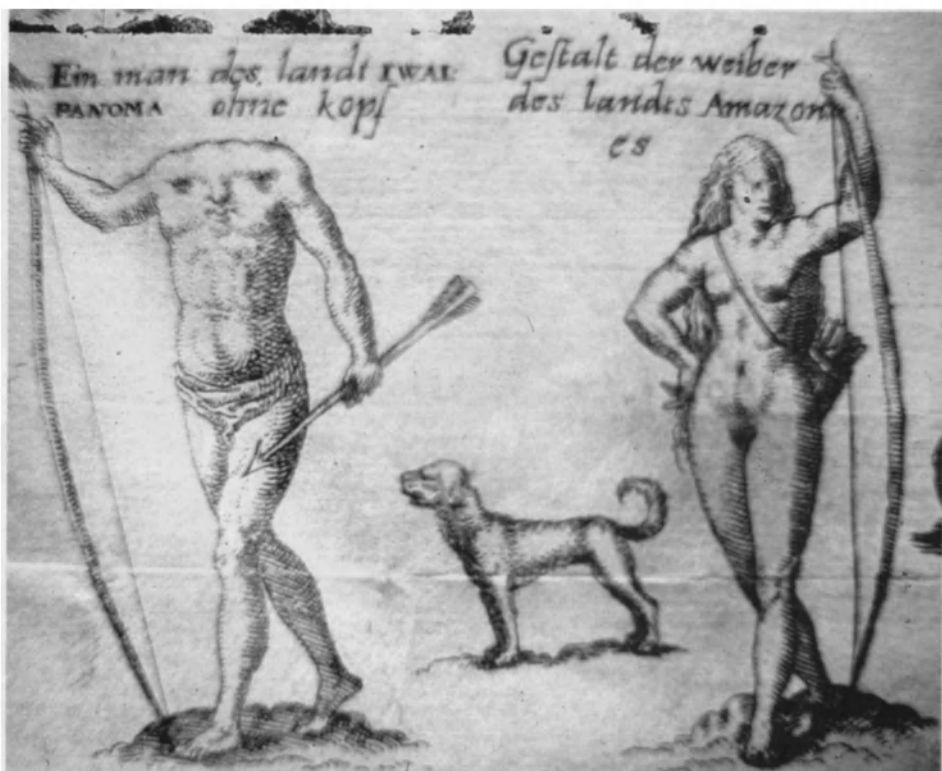 Ein man des landt IWAI:
PANOMA ohne kopf
Gestalt der weiber
des landts Amazon
es